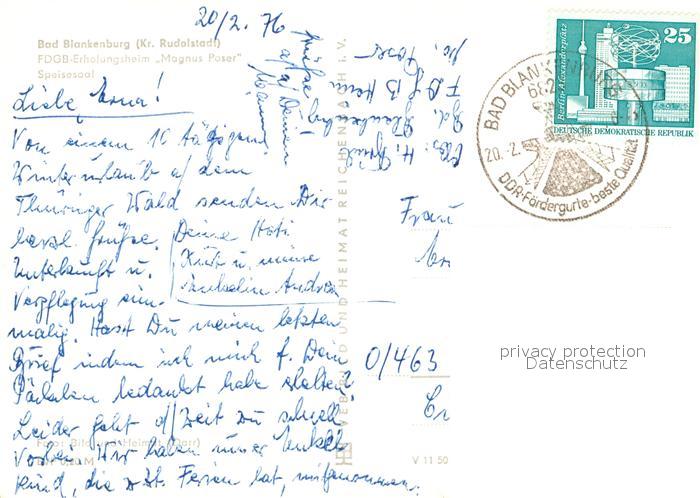 20/2. 76
Bad Blankenburg (Kr. Rudolstadt)
FDGB-Erholungsheim „Magnus Poser"
Speisesaal
Liebe Erna!
Von einem 10 tägigen
Winterurlaub a/ dem
Thüringer Wald senden Dir
herzl. Grüße. Deine Hati
Kurt u. unsere
Enkelin Andrea
Unterkunft u.
Verpflegung ein-
malig. Hast Du meinen letzten
Brief indem ich mich f. Dein
Päckchen bedankt habe erhalten?
Leider geht d/ Zeit zu schnell
vorbei. Wir haben unser Enkel-
kind, die z. Zt. Ferien hat, mitgenommen.
Grüße
a/ a/ Deinen
Mann
Abs: H.
Bd. Blankenburg
FDGB Heim
M. Poser
Frau
0/463
Foto: Bild und Heimat (Darr)
V 11 50
VEB BILD UND HEIMAT REICHENBACH i. V.
BAD BLANKENBURG
682
20. 2.
DDR-Fördergurte-beste Qualität
25
Berlin, Alexanderplatz
DEUTSCHE DEMOKRATISCHE REPUBLIK
privacy protection
Datenschutz